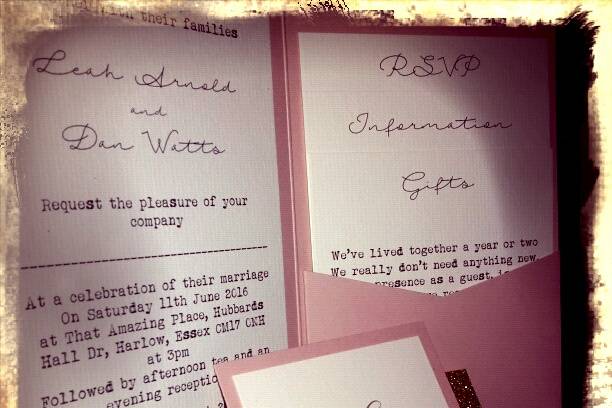 with their families
Leah Arnold
and
Dan Watts
Request the pleasure of your
company
At a celebration of their marriage
On Saturday 11th June 2016
at That Amazing Place, Hubbards
Hall Dr, Harlow, Essex CM17 0NH
at 3pm
Followed by afternoon tea and an
evening reception
RSVP
Information
Gifts
We've lived together a year or two
We really don't need anything new
presence as a guest